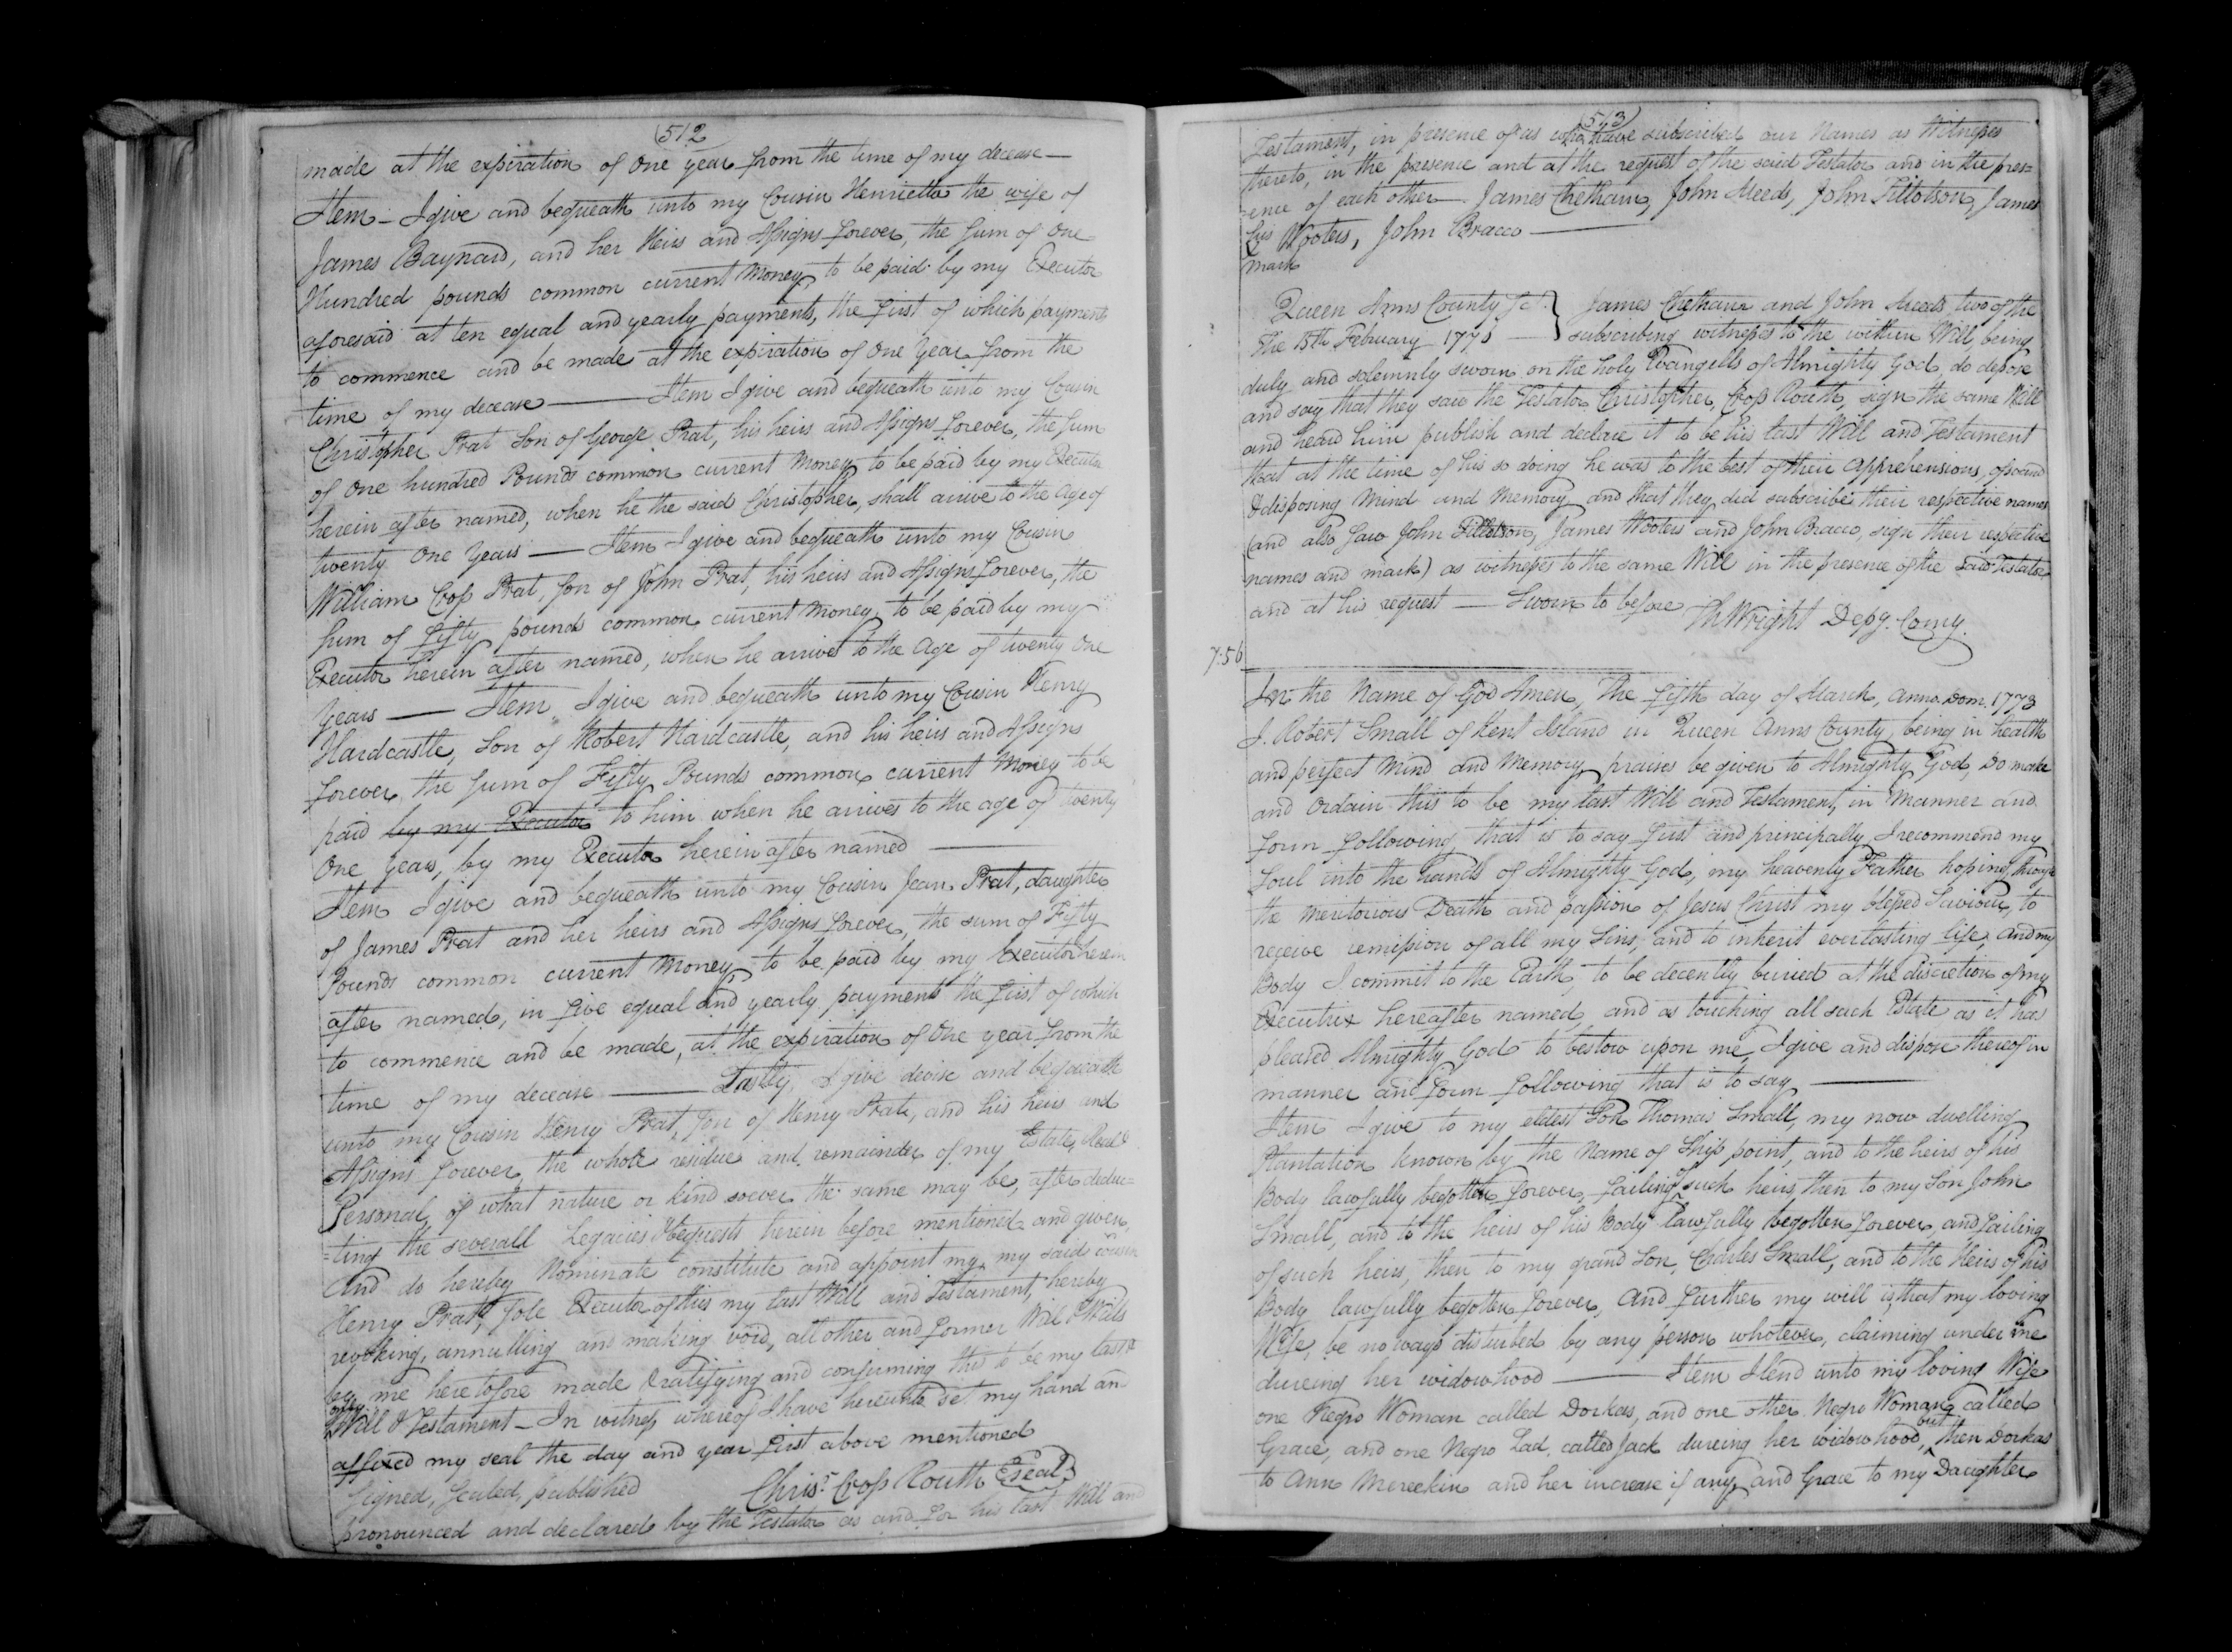 512
made at the expiration of One year from the time of my decease —
Item – I give and bequeath unto my Cousin Henrietta the wife of
James Baynard, and her Heirs and Assigns forever, the sum of One
Hundred pounds common current Money, to be paid by my Executor
aforesaid at ten equal and yearly payments, the first of which payments
to commence and be made at the expiration of One Year from the
time of my decease — Item I give and bequeath unto my Cousin
Christopher Prat Son of George Prat, his heirs and Assigns forever, the sum
of One hundred Pounds common current Money to be paid by my Executor
herein after named, when he the said Christopher, shall arrive to the Age of
twenty One Years — Item I give and bequeath unto my Cousin
William Crop Prat, Son of John Prat, his heirs and Assigns forever, the
sum of fifty pounds common current Money, to be paid by my
Executor herein after named, when he arrives to the Age of twenty One
Years — Item I give and bequeath unto my Cousin Henry
Hardcastle, Son of Robert Hardcastle, and his heirs and Assigns
forever the sum of Fifty Pounds common current Money to be
paid by my Executor to him when he arrives to the age of twenty
One Years, by my Executor herein after named —
Item I give and bequeath unto my Cousin Jean Prat, daughter
of James Prat and her heirs and Assigns forever, the sum of Fifty
Pounds common current Money, to be paid by my Executor herein
after named, in five equal and yearly payments the first of which
to commence and be made, at the expiration of One year from the
time of my decease — Lastly, I give devise and bequeath
unto my Cousin Henry Prat, Son of Henry Prat, and his heirs and
Assigns forever, the whole residue and remainder of my Estate, Real &
Personal, of what nature or kind soever the same may be, after deduc=
=ting the severall Legacies & bequests herein before mentioned and given,
And do hereby Nominate constitute and appoint my my said cousin
Henry Prat, Sole Executor of this my last Will and Testament, hereby
revoking, annulling and making void, all other and former Will & Wills
by me heretofore made & ratifying and confirming this to be my last &
only
Will & Testament – In witness whereof I have hereunto set my hand an
affixed my seal the day and year first above mentioned
Signed, Sealed, published Chris.r Crop Routh Seal
pronounced and declared by the Testator as and for his last Will and
513
Testament, in presence of us who have subscribed our Names as Witnesses
thereto, in the presence and at the request of the said Testator and in the pres=
=ence of each other — James Chetham, John Meeds, John Tillotson, James
his Wooters, John Bracco —
mark
Queen Anns County Sc. James Chetham and John Meeds two of the
The 15th February 1775 — subscribing witnesses to the within Will, being
duly and solemnly sworn on the holy Evangells of Almighty God, do depose
and say that they saw the Testator Christopher, Crop Routh, sign the same Will
and heard him publish and declare it to be his last Will and Testament
that at the time of his so doing he was to the best of their apprehensions, of sound
& disposing Mind and Memory, and that they did subscribe their respective names
(and also saw John Tillotson, James Wooters and John Bracco, sign their respective
names and mark) as witnesses to the same Will in the presence of the said Testator
and at his request — Sworn to before Th Wright Depy. Comy.
7:56
In the Name of God Amen, The fifth day of March, Anno. Dom. 1773
I. Robert Small of Kent Island in Queen Anns County, being in health
and perfect Mind and Memory, praises be given to Almighty God, Do make
and Ordain this to be my last Will and Testament, in Manner and
form following, that is to say first and principally, I recommend my
Soul into the hands of Almighty God, my heavenly Father hoping, through
the Meritorious Death and passion of Jesus Christ my blessed Saviour, to
receive remission of all my Sins, and to inherit everlasting life, and my
Body I commit to the Earth, to be decently buried at the discretion of my
Executrix hereafter named, and as touching all such Estate as it has
pleased Almighty God to bestow upon me, I give and dispose thereof in
manner and form following that is to say —
Item I give to my eldest Son Thomas Small, my now dwelling
Plantation known by the Name of Ship point, and to the heirs of his
Body lawfully begotten forever, failing of such heirs, then to my Son John
Small, and to the heirs of his Body lawfully begotten forever, and failing
of such heirs, then to my grand Son, Charles Small, and to the Heirs of his
Body lawfully begotten forever, And further my will is, that my loving
Wife, be no ways disturbed by any person whotever, claiming under me
dureing her widowhood — Item I lend unto my loving Wife
one Negro Woman called Dorkas, and one other Negro Woman called
Grace, and one Negro Lad, called Jack dureing her widowhood, but then Dorkas
to Ann Mereekin and her increase if any, and Grace to my Daughter